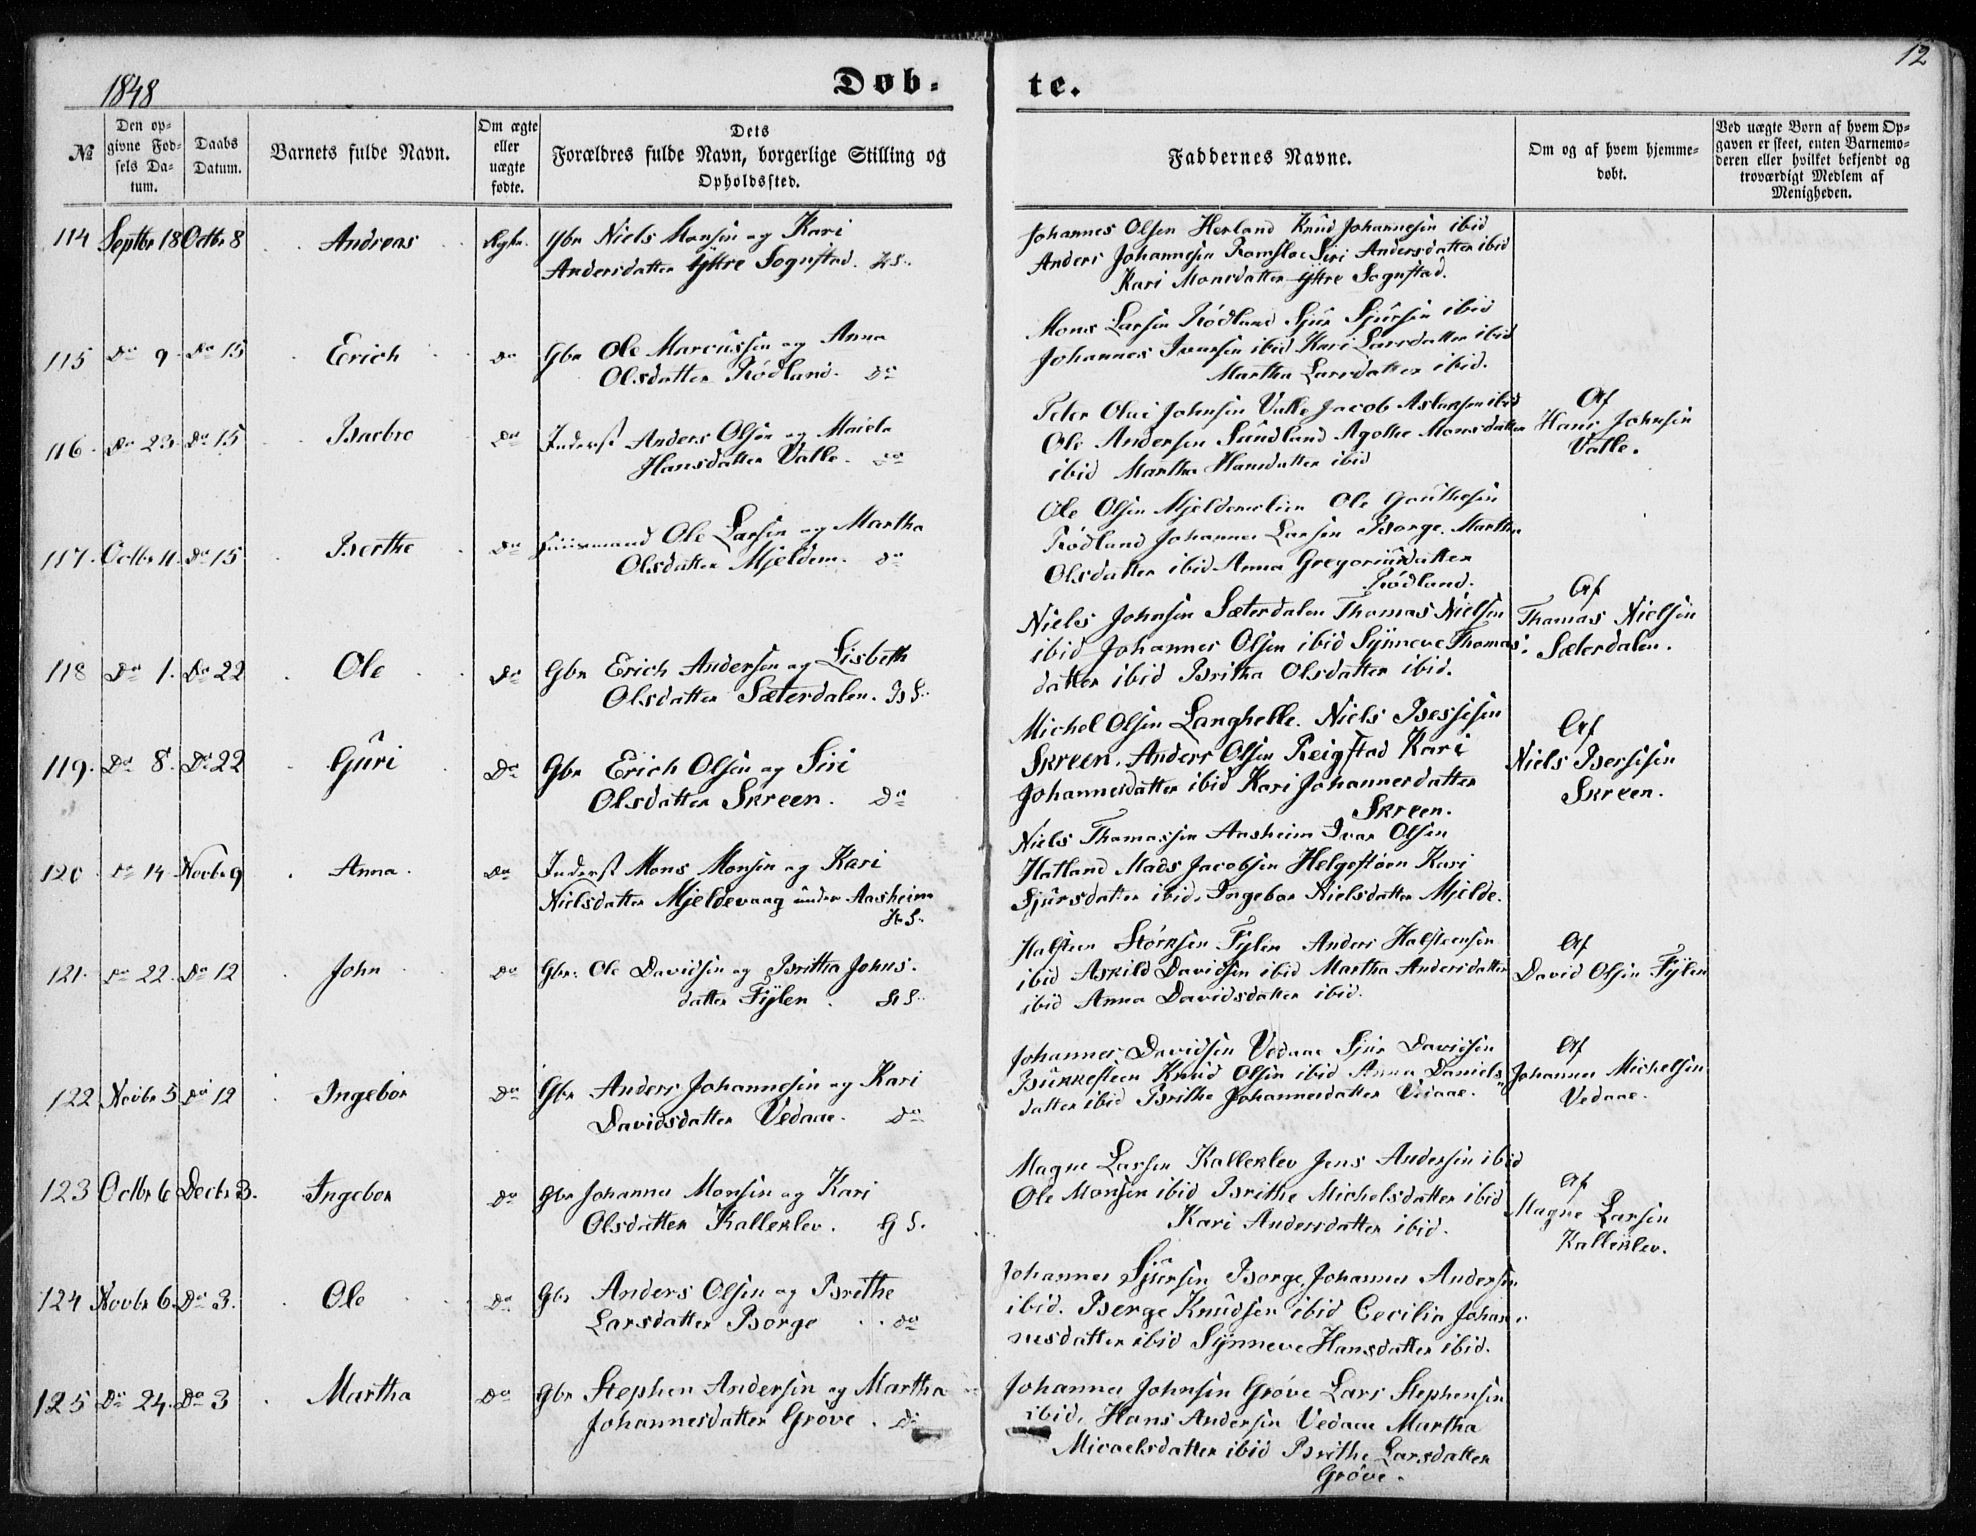 12
1848
Døb-
te.
№
Den op-
givne Fød-
sels Da-
tum.
Daabs
Datum.
Barnets fulde Navn.
Om ægte
eller
uægte
fødte.
Dets
Forældres fulde Navn, borgerlige Stilling og
Opholdssted.
Faddernes Navne.
Om og af hvem hjemme-
døbt.
Ved uægte Børn af hvem Op-
gaven er skeet, enten Barnemo-
deren eller hvilket bekjendt og
troværdigt Medlem af
Menigheden.
114 Septbr 18 Octbr 8 Andreas Ægte. Gbr Niels Monsen og Kari
Andersdatter Yttre Sognstad.
Johannes Olsen Herland Knud Johannesen ibid
Anders Johannesen Romsloe Siri Andersdatter ibid
Kari Monsdatter Yttre Sognstad.
115 Do 9. Do 15 Erich Do Gbr Ole Marcussen og Anna
Olsdatter Rødland. Do
Mons Larsen Rødland Sjur Sjursen ibid
Johannes Ivarsen ibid Kari Larsdatter ibid
Martha Larsdatter ibid.
116. Do 23. Do 15 Barbro Do Inderst Anders Olsen og
Hansdatter Valle. Do
Peder Olai Johnsen Valle Jacob Aslaksen ibid
Ole Andersen Sundland Agathe Monsdatter
ibid Martha Hansdatter ibid
Af
Hans Johnsen
Valle.
117. Octbr 11. Do 15 Berthe Do Huusmand Ole Larsen og Martha
Olsdatter Mjeldem. Do
Ole Olsen Mjeldemslien Ole Gauthesen
Rødland Johannes Larsen Borge. Martha
Olsdatter ibid Anna Gregoriusdatter
Rødland.
118 Do 1. Do 22 Ole Do Gbr Erich Andersen og Lisbeth
Olsdatter Sæterdalen. B S.
Niels Johnsen Sæterdalen Thomas Nielsen
ibid Johannes Olsen ibid Synneve Thomas-
datter ibid Britha Olsdatter ibid.
Af
Thomas Nielsen
Sæterdalen.
119. Do 8. Do 22 Guri Do Gbr Erich Olsen og Siri
Olsdatter Skreen. Do
Michel Olsen Langhelle. Niels Bessesen
Skreen. Anders Olsen Reigstad Kari
Johannesdatter ibid Kari Johannesdatter
Skreen.
Af
Niels Bersesen
Skreen.
120 Do 14 Novbr 9 Anna. Do Inderst Mons Monsen og Kari
Nielsdatter Mjeldevaag under Aasheim
H S.
Niels Thomassen Aasheim Ivar Olsen
Hatland Mads Jacobsen Helgestøen Kari
Sjursdatter ibid. Ingebor Nielsdatter Mjelde.
121. Do 22. Do 12 John Do Gbr. Ole Davidsen og Britha Johns-
datter Fylen. H S.
Halsteen Størksen Fylen Anders Halsteensen
ibid Askild Davidsen ibid Martha Andersdatter
ibid Anna Davidsdatter ibid.
Af
David Olsen Fylen
122 Novbr 5 Do 12 Ingebor Do Gbr Anders Johannesen og Kari
Davidsdatter Vedaae. Do
Johannes Davidsen Vedaae Sjur Davidsen
Burkesteen Knud Olsen ibid Anna Daniels-
datter ibid Brithe Johannesdatter Vedaae.
Af
Johannes Michelsen
Vedaae.
123 Octbr 6 Decbr 3. Ingebor Do Gbr Johannes Monsen og Kari
Olsdatter Kalleklev. G S.
Magne Larsen Kalleklev Jens Andersen ibid
Ole Monsen ibid Brithe Michelsdatter ibid
Kari Andersdatter ibid.
Af
Magne Larsen
Kalleklev.
124 Novbr 6. Do 3. Ole Do Gbr Anders Olsen og Brithe
Larsdatter Borge Do
Johannes Sjursen Borge, Johannes Andersen
ibid. Berge Knudsen ibid Cecilia Johan-
nesdatter ibid Synneve Hansdatter ibid.
125 Do 24. Do 3 Martha Do Gbr Stephen Andersen og Martha
Johannesdatter Grøve. Do
Johannes Johnsen Grøve Lars Stephensen
ibid, Hans Andersen Vedaae Martha
Micaelsdatter ibid Brithe Larsdatter
Grøve.